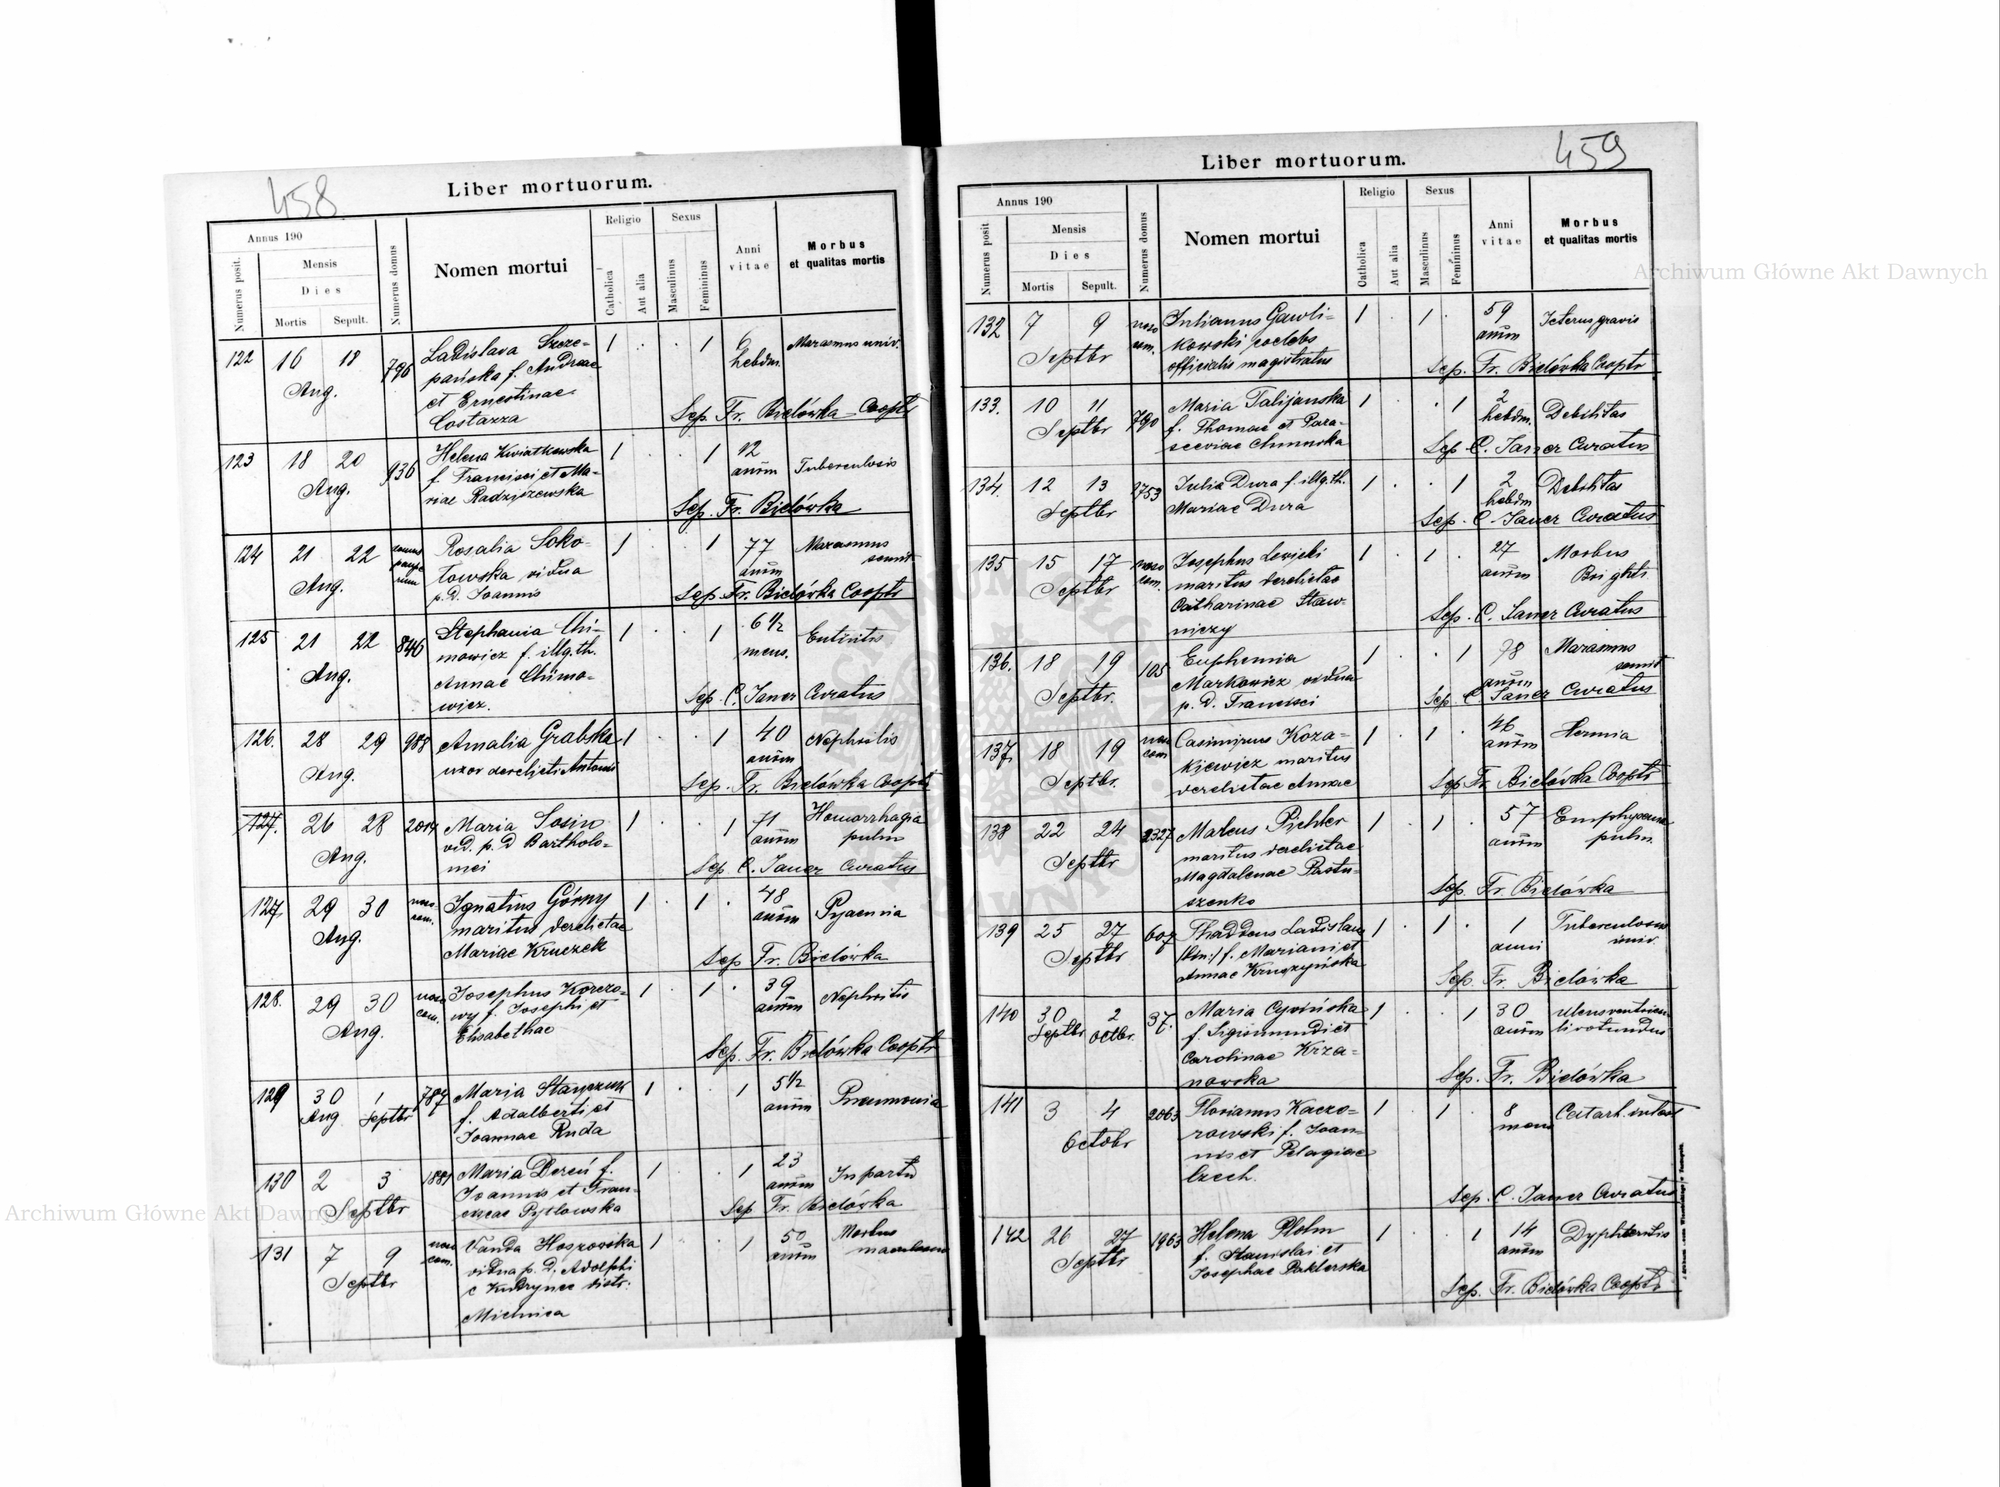 458
Liber mortuorum.
Annus 190
Numerus posit.
Mensis
Dies
Mortis
Sepult.
Numerus domus
Nomen mortui
Religio
Catholica
Aut alia
Sexus
Masculinus
Femininus
Anni vitae
Morbus
et qualitas mortis
122 16 18 796 Ladislava Szcze- 1 . . 1 6 Marasmus univ.
Aug. pańska f. Andreae hebdm.
et Ernestinae
Costazza Sep. Fr. Bielówka Cooptr
123 18 20 936 Helena Kwiatkowska 1 . . 1 12 Tuberculosis
Aug. f. Francisci et Ma- annm
riae Radziszewska Sep. Fr. Bielówka
124 21 22 domus pauperum Rosalia Soko- 1 . . 1 77 Marasmus
Aug. łowska vidua annm
p. D. Joannis Sep. Fr. Bielówka Cooptr
125 21 22 846 Stephania Chi- 1 . . 1 6 1/2 Entiritis
Aug. mowicz f. illg. th. mens.
Annae Chimo-
wicz. Sep. C. Janer Curatus
126. 28 29 988 Amalia Grabska 1 . . 1 40 Nephritis
Aug. uxor derelicti Antonii annm
Sep. Fr. Bielówka Cooptr
127. 26 28 2014 Maria Sosin 1 . . 1 71 Homorrhagia
Aug. vid. p. D Bartholo- annm pulm
mei Sep. C. Janer Curatus
127. 29 30 noso com. Ignatius Górny 1 . 1 . 48 Pyaemia
Aug. maritus derelictae annm
Mariae Kruczek Sep Fr. Bielówka
128. 29 30 noso com. Josephus Korczo- 1 . 1 . 39 Nephritis
Aug. wy f. Josephi et annm
Elisabethae Sep. Fr. Bielówka Cooptr
129 30 1 787 Maria 1 . . 1 5 1/2 Pneumonia
Aug Septbr f. Adalberti et annm
Joannae Ruda
130 2 3 1881 Maria Dereń f. 1 . . 1 23 In partu
Septbr Joannis et Fran- annm
ciscae Pytlowska Sep Fr. Bielówka
131 7 9 noso com. Vanda Hoszowska 1 . . 1 50 Morbus
Septbr vidua p. D. Adolphi annm
e Kudrynce distr.
Mielnica
459
Liber mortuorum.
Annus 190
Numerus posit
Mensis
Dies
Mortis
Sepult.
Numerus domus
Nomen mortui
Religio
Catholica
Aut alia
Sexus
Masculinus
Femininus
Anni vitae
Morbus
et qualitas mortis
132 7 9 noso com. Julianus Gawli- 1 . 1 . 59 Icterus gravis
Septbr kowski coelebs annm
officialis magistratus Sep. Fr. Bielówka Cooptr
133. 10 11 790 Maria Talijanska 1 . . 1 2 Debilitas
Septbr f. Thomae et Para- hebdm.
sceviae Sep. C. Janer Curatus
134. 12 13 2753 Julia Dura f. illg. th. 1 . . 1 2 Debilitas
Septbr Mariae Dura hebdm
Sep. C. Janer Curatus
135 15 17 noso com. Josephus Lewicki 1 . 1 . 27 Morbus
Septbr maritus derelictae annm Brighti
Catharinae Staw-
niczy Sep. C. Janer Curatus
136. 18 19 105 Euphemia 1 . . 1 78 Marasmus
Septbr. Markowicz vidua annm
p. D. Francisci Sep. C. Janer Curatus
137. 18 19 noso com Casimirus Koza- 1 . 1 . 46 Hernia
Septbr. kiewicz maritus annm
derelictae Annae Sep. Fr. Bielówka Cooptr
138 22 24 2327 Marcus Pichler 1 . 1 . 57 Emphysema
Septbr maritus derelictae annm pulm.
Magdalenae Pastu-
szenko Sep. Fr. Bielówka
139 25 27 607 Thaddeus Ladislaus 1 . 1 . 1 Tuberculosis
Septbr (bin:) f. Mariani et anni univ.
Annae Kruszyńska Sep. Fr. Bielówka
140 30 2 37. Maria Cywińska 1 . . 1 30 Ulcus ventricu-
Septbr Octbr. f. Sigismundi et annm li rotundus
Carolinae Krza-
nowska Sep. Fr. Bielówka
141 3 4 2063 Florianus Kaczo- 1 . 1 . 8 Catarh. intest
Octobr rowski f. Joan- mens
nis et Pelagiae
Czech. Sep. C. Janer Curatus
142 26 27 1963 Helena 1 . . 1 14 Dyphteritis
Septbr f. Stanislai et annm
Josephae Sep. Fr. Bielówka Cooptr
Archiwum Główne Akt Dawnych
Archiwum Główne Akt Dawnych